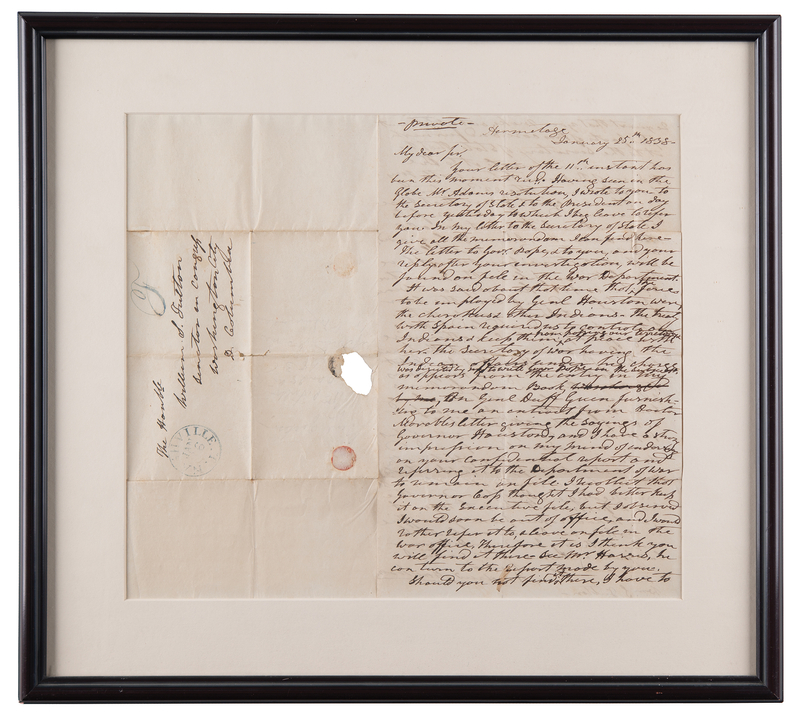 - private -
Hermitage
January 25th 1838-
My dear sir,
your letter of the 11th instant has
been this moment recd. Having seen in the
Globe Mr. Adams resolution, I wrote to you to
the Secretary of State & to the President on day
before yesterday to which I beg leave to refer
you. In my letter to the Secretary of State I
give all the memorandom I can find here-
The letter to Govr. Pope, & to you, and your
reply after your investigation, will be
found on file in the War Department.
It was said about that time that forces
to be employed by Genl Houston were
the cherokees & other Indians- The treaty
with Spain required us to controle our
Indians & keep them at peace with
her. the Secretary of War having the
Indian affairs under his
as appears from the entry in my
memorandom Book,
by me, Genl Duff Green furnish-
ing to me an extract from Doctor
Mayables letter giving the sayings of
Governor Houston, and I have a strong
impression on my mind of endorsing
on your confidential report and
referring it to the Department of War
to remain on file I recollect that
Governor Cass thought I had better keep
it on the Executive file, but I observed
I would soon be out of office, and I would
rather refer it to, & leave on file in the
War office, Therefore it is I think you
will find it there. See Mr. Harris, he
can turn to the report made by you.
Should you not find it there, I have to
The Honble
William S. Fulton
senator in congress
Washington City
D. Columbia
5
VILLE